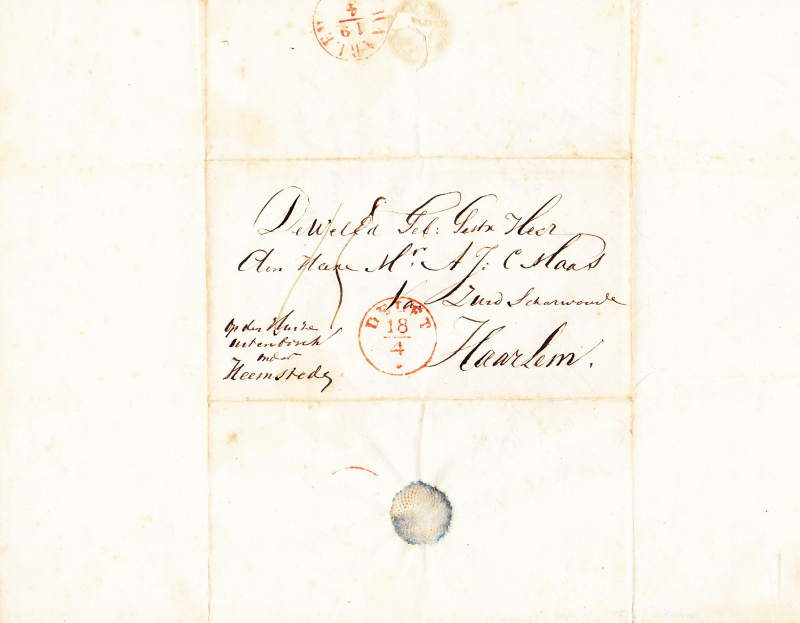 HAARLEM
19
4
De WelEd Geb: Gestr Heer
den Heere Mr. A J: C Maas
Van Zuid Scharwoude
Haarlem.
DELFT
18
4
op den Huize
onder
Heemstede